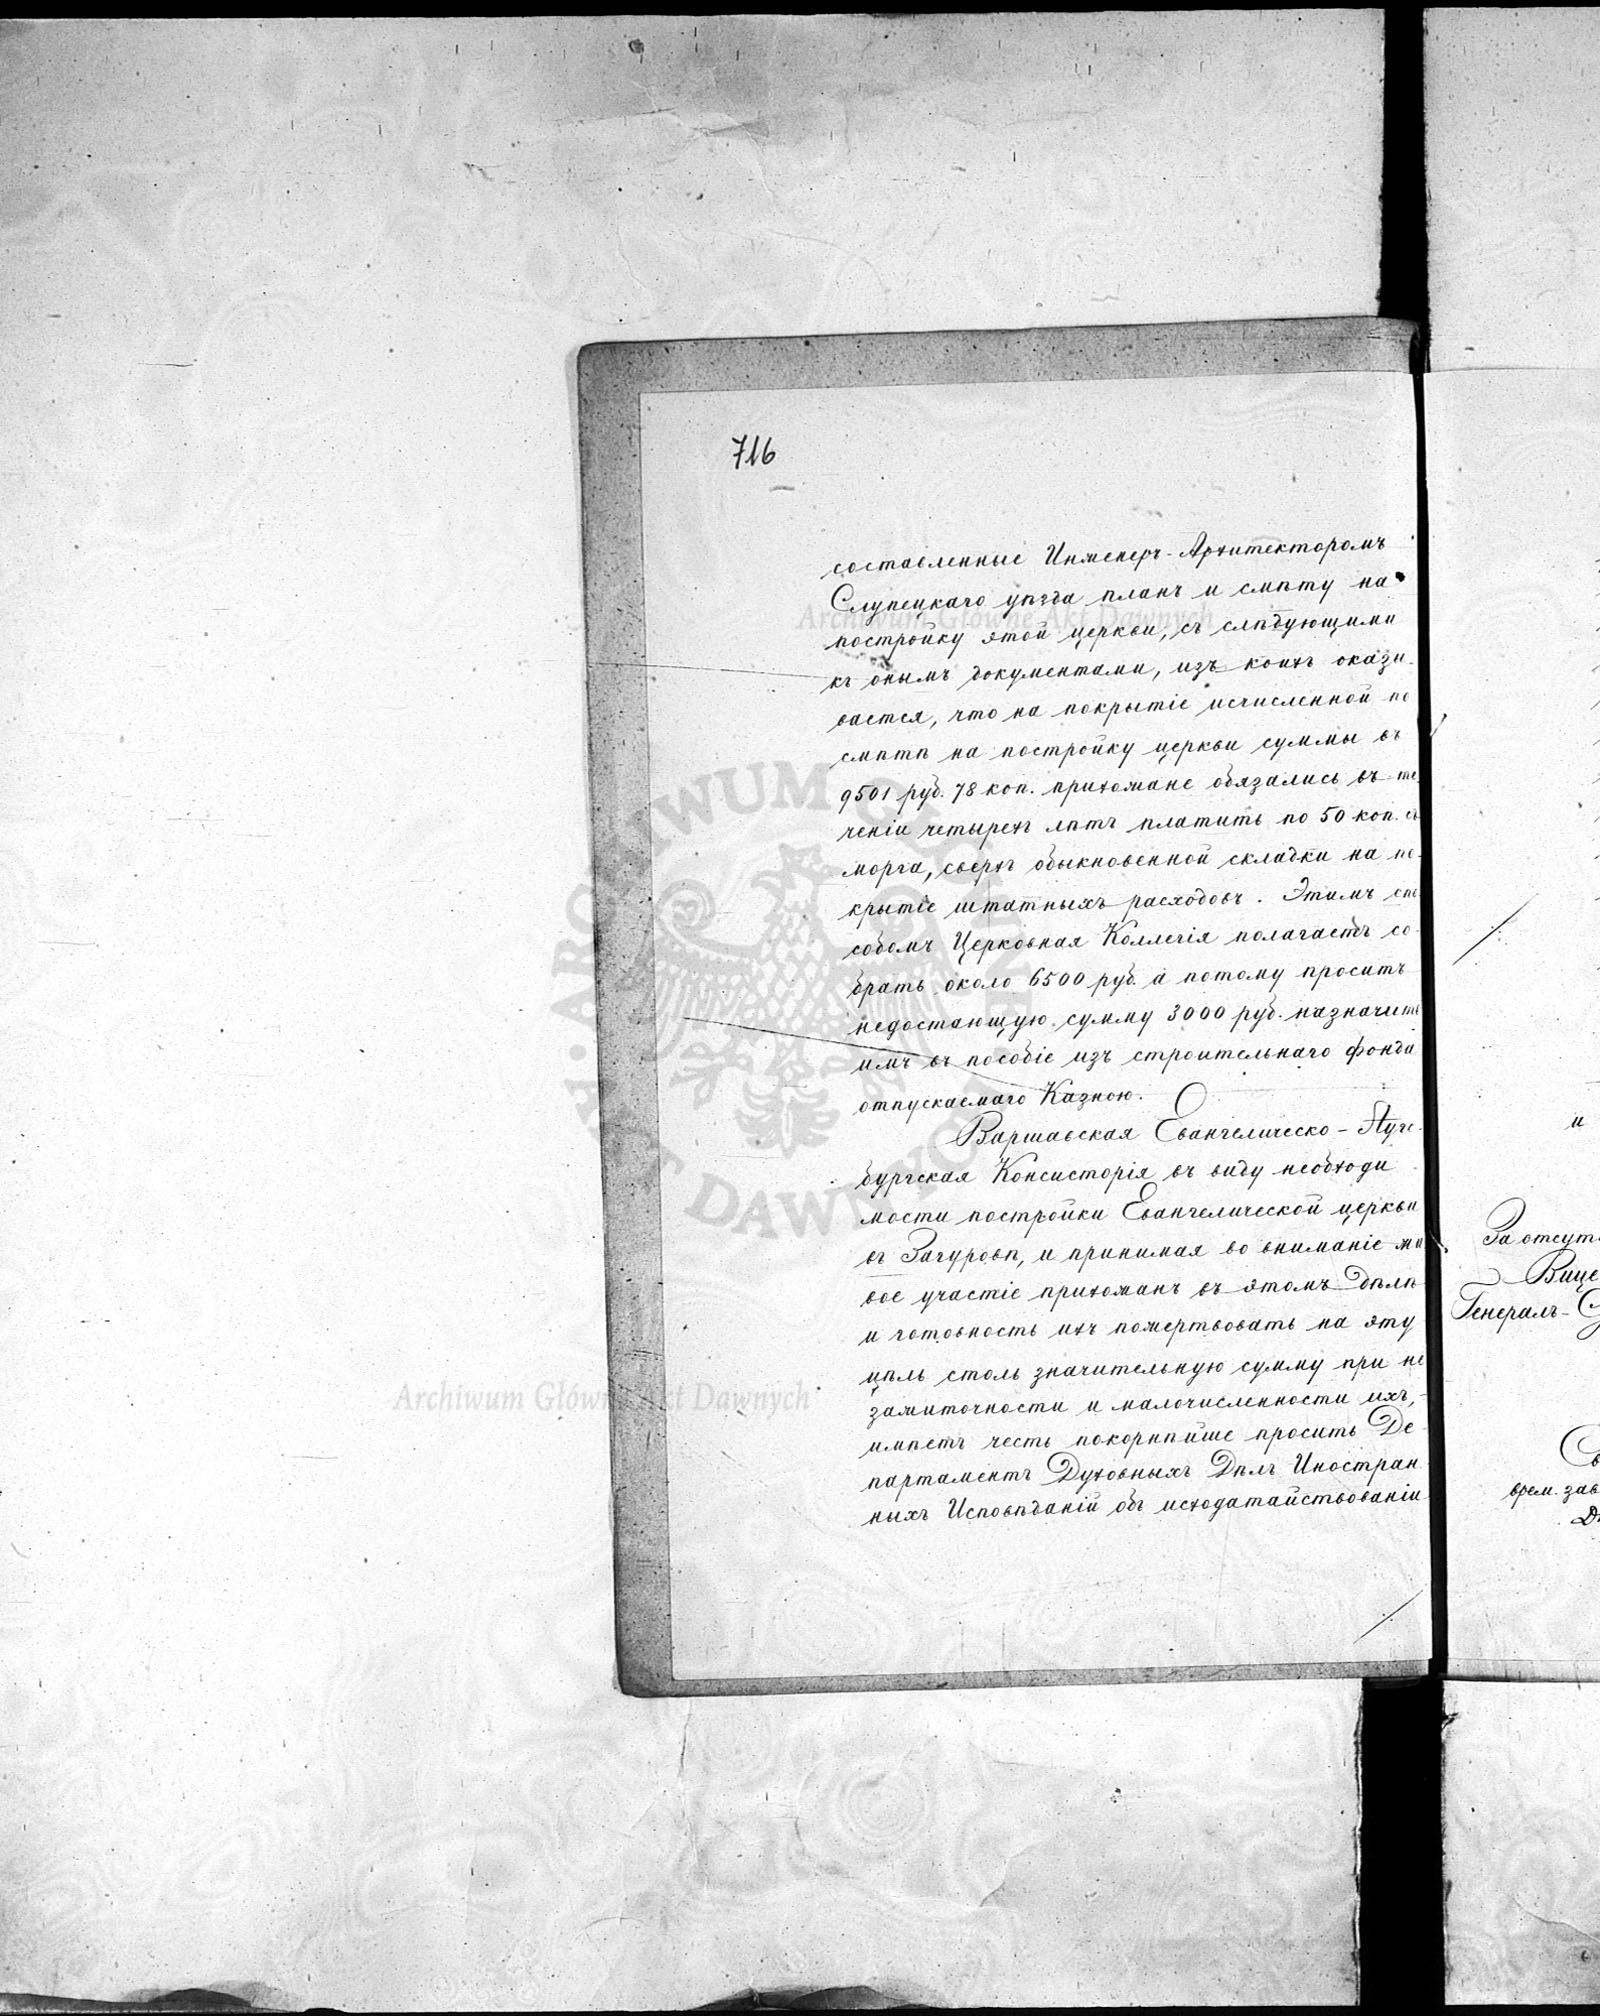 716
составленные Инженеръ-Архитекторомъ
Слупецкаго уѣзда планъ и смѣту на
постройку этой церкви, съ слѣдующими
къ онымъ документами, изъ коихъ оказы-
вается, что на покрытіе исчисленной по
смѣтѣ на постройку церкви суммы въ
9501 руб. 78 коп. прихожане обязались въ те
ченіи четырехъ лѣтъ платить по 50 коп. съ
морга, сверхъ обыкновенной складки на по-
крытіе штатныхъ расходовъ. Этимъ спо
собомъ Церковная Коллегія полагаетъ со-
брать около 6500 руб. а потому проситъ
недостающую сумму 3000 руб. назначить
имъ въ пособіе изъ строительнаго фонда
отпускаемаго Казною.
Варшавская Евангелическо-Аугс-
бургская Консисторія въ виду необходи
мости постройки Евангелической церкви
въ Загуровѣ, и принимая во вниманіе жи
вое участіе прихожанъ въ этомъ дѣлѣ
и готовность ихъ пожертвовать на эту
цѣль столь значительную сумму при не
зажиточности и малочисленности ихъ,
имѣетъ честь покорнѣйше просить Де-
партаментъ Духовныхъ Дѣлъ Иностран
ныхъ Исповѣданій объ исходатайствованіи
и
За отсут
Вице
Генералъ-С
врем. зав
Archiwum Główne Akt Dawnych
Archiwum Główne Akt Dawnych